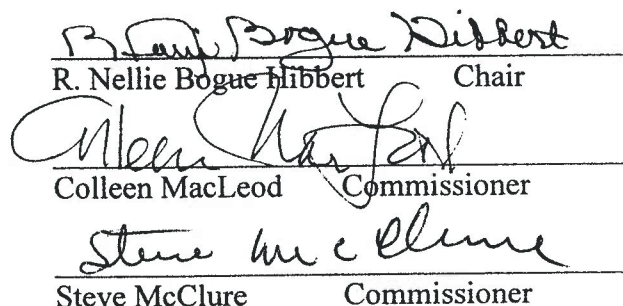 R. Nellie Bogue Hibbert
R. Nellie Bogue Hibbert Chair
Colleen MacLeod
Colleen MacLeod Commissioner
Steve McClure
Steve McClure Commissioner